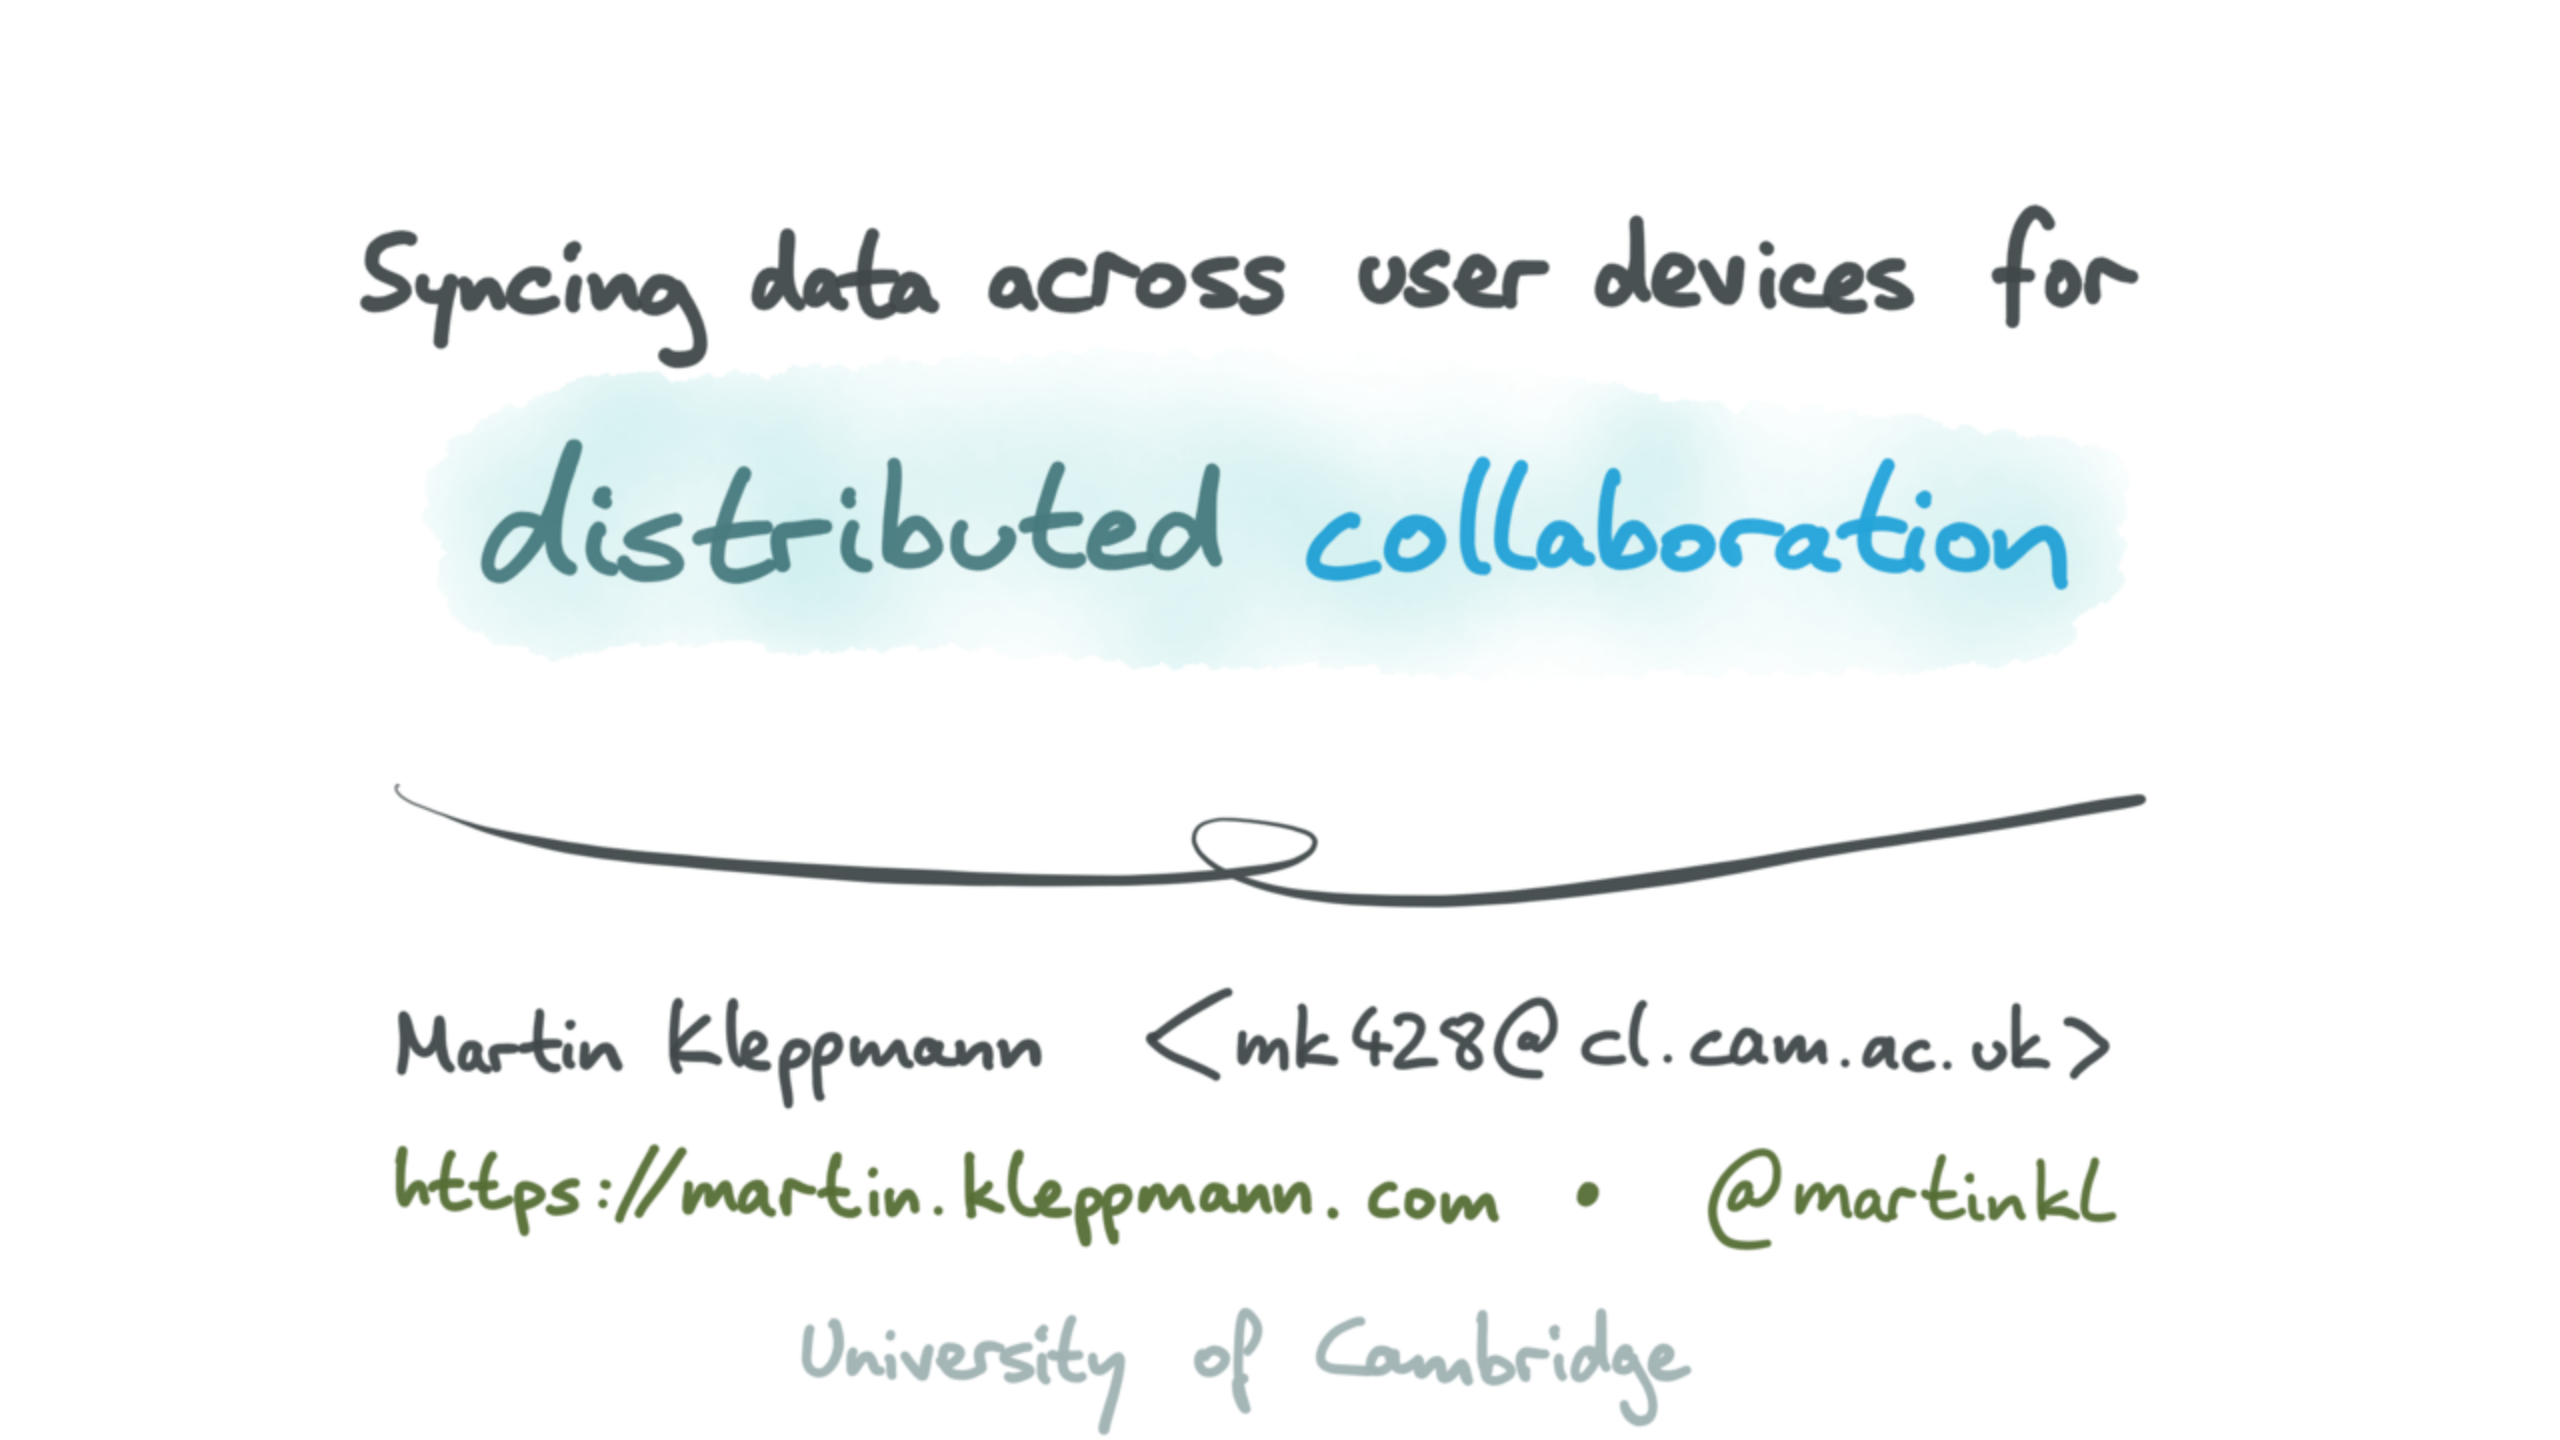 Syncing data across user devices for
distributed collaboration
Martin Kleppmann <mk428@cl.cam.ac.uk>
https://martin.kleppmann.com • @martinkl
University of Cambridge